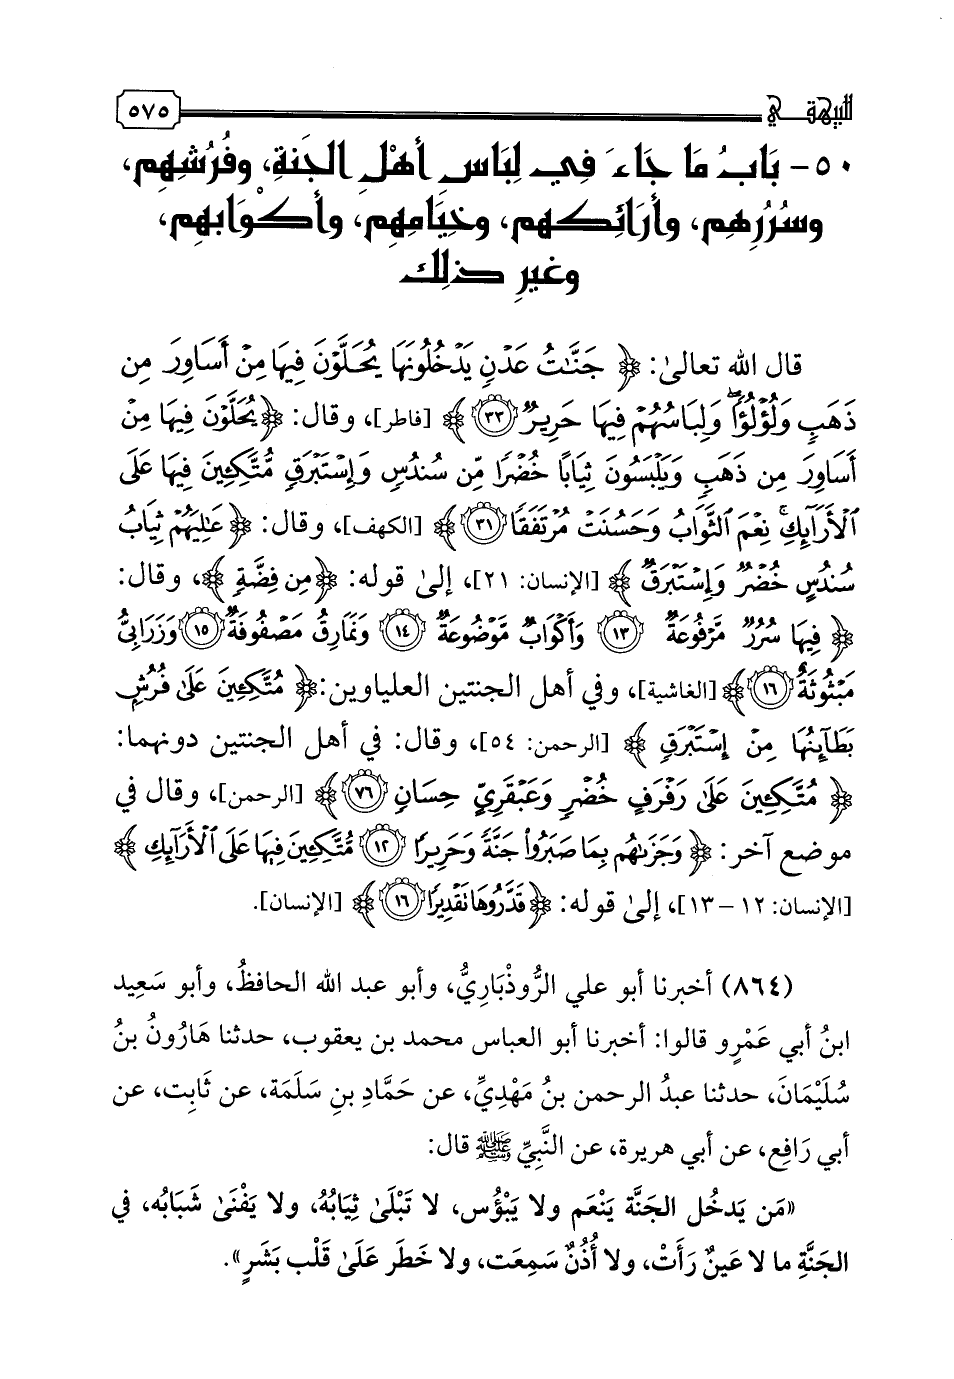 للبيهقي
٥٧٥
٥٠- بَابُ مَا جَاءَ فِي لِبَاسِ أهْلِ الجَنةِ، وفُرُشِهِم،
وسُرُرِهِم، وأرَائِكهِم، وخِيَامِهِم، وأكْوَابِهِم،
وغيرِ ذلِك
قال الله تعالىٰ: ﴿جَنَّٰتُ عَدۡنٖ يَدۡخُلُونَهَا يُحَلَّوۡنَ فِيهَا مِنۡ أَسَاوِرَ مِن
ذَهَبٖ وَلُؤۡلُؤٗاۖ وَلِبَاسُهُمۡ فِيهَا حَرِيرٞ ٣٣﴾ [فاطر]، وقال: ﴿يُحَلَّوۡنَ فِيهَا مِنۡ
أَسَاوِرَ مِن ذَهَبٖ وَيَلۡبَسُونَ ثِيَابًا خُضۡرٗا مِّن سُندُسٖ وَإِسۡتَبۡرَقٖ مُّتَّكِـِٔينَ فِيهَا عَلَى
ٱلۡأَرَآئِكِۚ نِعۡمَ ٱلثَّوَابُ وَحَسُنَتۡ مُرۡتَفَقٗا ٣١﴾ [الكهف]، وقال: ﴿عَٰلِيَهُمۡ ثِيَابُ
سُندُسٍ خُضۡرٞ وَإِسۡتَبۡرَقٞ﴾ [الإنسان: ٢١]، إلىٰ قوله: ﴿مِن فِضَّةٖ﴾، وقال:
﴿فِيهَا سُرُرٞ مَّرۡفُوعَةٞ ١٣ وَأَكۡوَابٞ مَّوۡضُوعَةٞ ١٤ وَنَمَارِقُ مَصۡفُوفَةٞ ١٥ وَزَرَابِيُّ
مَبۡثُوثَةٌ ١٦﴾ [الغاشية]، وفي أهل الجنتين العلياوين: ﴿مُتَّكِـِٔينَ عَلَىٰ فُرُشِۭ
بَطَآئِنُهَا مِنۡ إِسۡتَبۡرَقٖ﴾ [الرحمن: ٥٤]، وقال: في أهل الجنتين دونهما:
﴿مُتَّكِـِٔينَ عَلَىٰ رَفۡرَفٍ خُضۡرٖ وَعَبۡقَرِيٍّ حِسَانٖ ٧٦﴾ [الرحمن]، وقال في
موضع آخر: ﴿وَجَزَىٰهُم بِمَا صَبَرُواْ جَنَّةٗ وَحَرِيرٗا ١٢ مُّتَّكِـِٔينَ فِيهَا عَلَى ٱلۡأَرَآئِكِ﴾
[الإنسان: ١٢ – ١٣]، إلىٰ قوله: ﴿قَدَّرُوهَا تَقۡدِيرٗا ١٦﴾ [الإنسان].
(٨٦٤) أخبرنا أبو علي الرُّوذْبَارِيُّ، وأبو عبد الله الحافظُ، وأبو سَعِيد
ابنُ أبي عَمْرٍو قالوا: أخبرنا أبو العباس محمد بن يعقوب، حدثنا هَارُونُ بنُ
سُلَيْمَانَ، حدثنا عبدُ الرحمن بنُ مَهْدِيٍّ، عن حَمَّادِ بنِ سَلَمَة، عن ثَابِت، عن
أبي رَافِع، عن أبي هريرة، عن النَّبِيِّ ﷺ قال:
«مَن يَدخُل الجَنَّة يَنْعَم ولا يَبْؤُس، لا تَبْلَىٰ ثِيَابُهُ، ولا يَفْنَىٰ شَبَابُه، في
الجَنَّةِ ما لا عَينٌ رَأَتْ، ولا أُذُنٌ سَمِعَت، ولا خَطَر عَلَىٰ قَلْب بَشَرٍ».